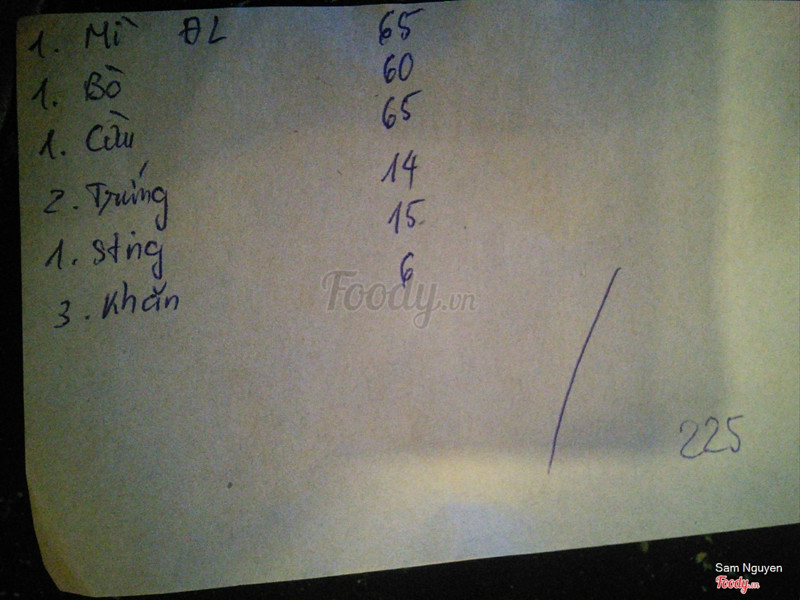 1. Mì ĐL 65
1. Bò 60
1. Cầu 65
2. Trứng 14
1. Sting 15
3. Khăn 6
Foody.vn
225
Sam Nguyen
Foody.vn